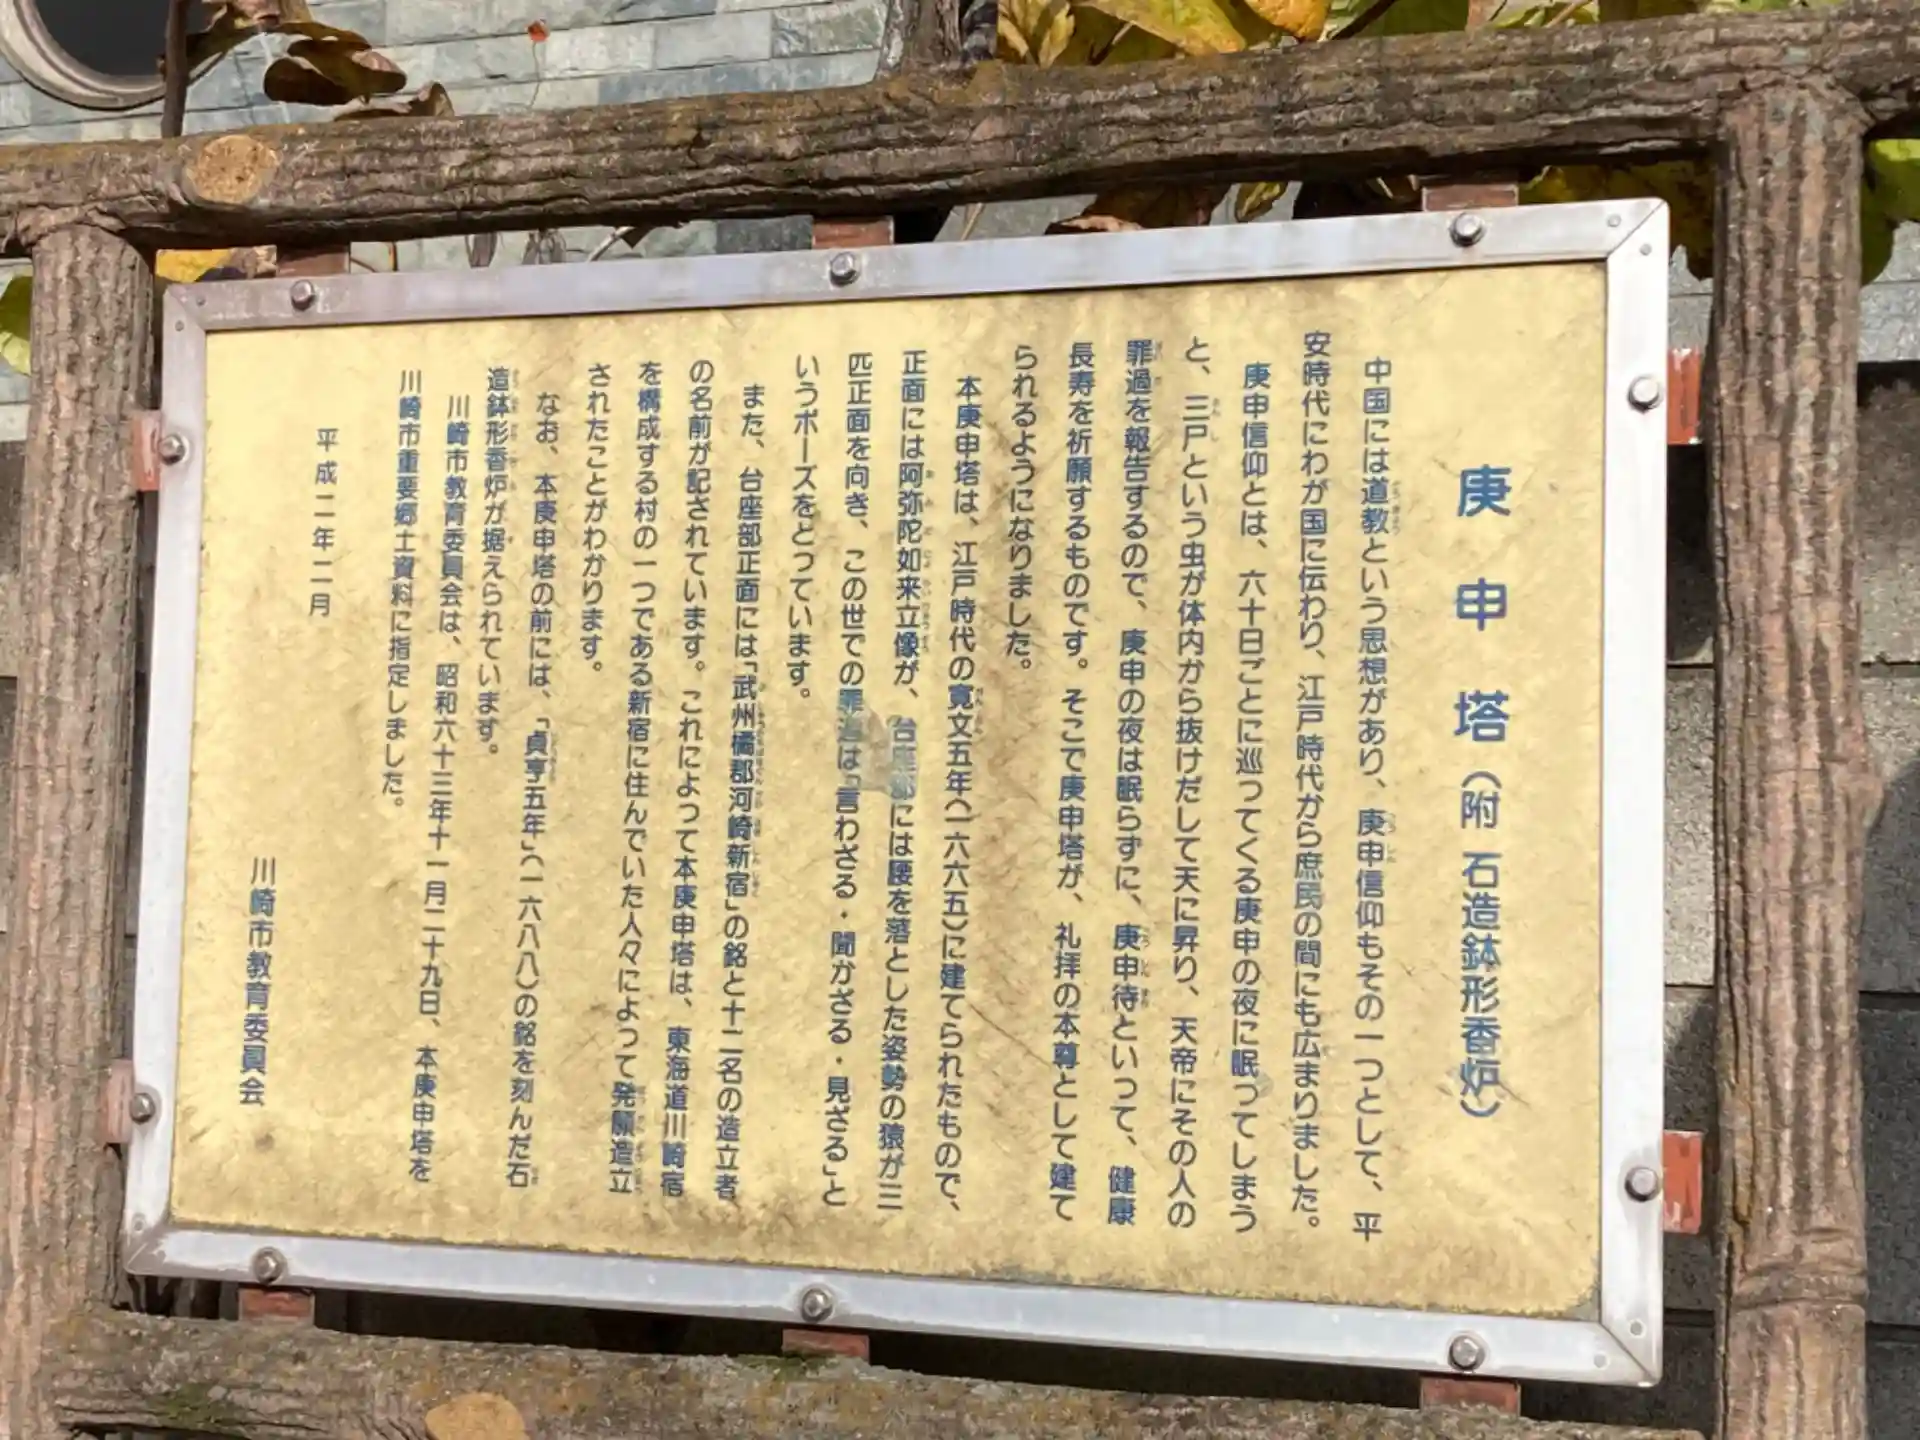 庚申塔(附 石造鉢形香炉)
中国には道教という思想があり、庚申信仰もその一つとして、平
安時代にわが国に伝わり、江戸時代から庶民の間にも広まりました。
庚申信仰とは、六十日ごとに巡ってくる庚申の夜に眠ってしまう
と、三尸という虫が体内から抜けだして天に昇り、天帝にその人の
罪過を報告するので、庚申の夜は眠らずに、庚申待といって、健康
長寿を祈願するものです。そこで庚申塔が、礼拝の本尊として建て
られるようになりました。
本庚申塔は、江戸時代の寛文五年(一六六五)に建てられたもので、
正面には阿弥陀如来立像が、台座部には腰を落とした姿勢の猿が三
匹正面を向き、この世での罪過は「言わざる・聞かざる・見ざる」と
いうポーズをとっています。
また、台座部正面には「武州橘郡河崎新宿」の銘と十二名の造立者
の名前が記されています。これによって本庚申塔は、東海道川崎宿
を構成する村の一つである新宿に住んでいた人々によって発願造立
されたことがわかります。
なお、本庚申塔の前には、「貞享五年」(一六八八)の銘を刻んだ石
造鉢形香炉が据えられています。
川崎市教育委員会は、昭和六十三年十一月二十九日、本庚申塔を
川崎市重要郷土資料に指定しました。
平成二年二月
川崎市教育委員会